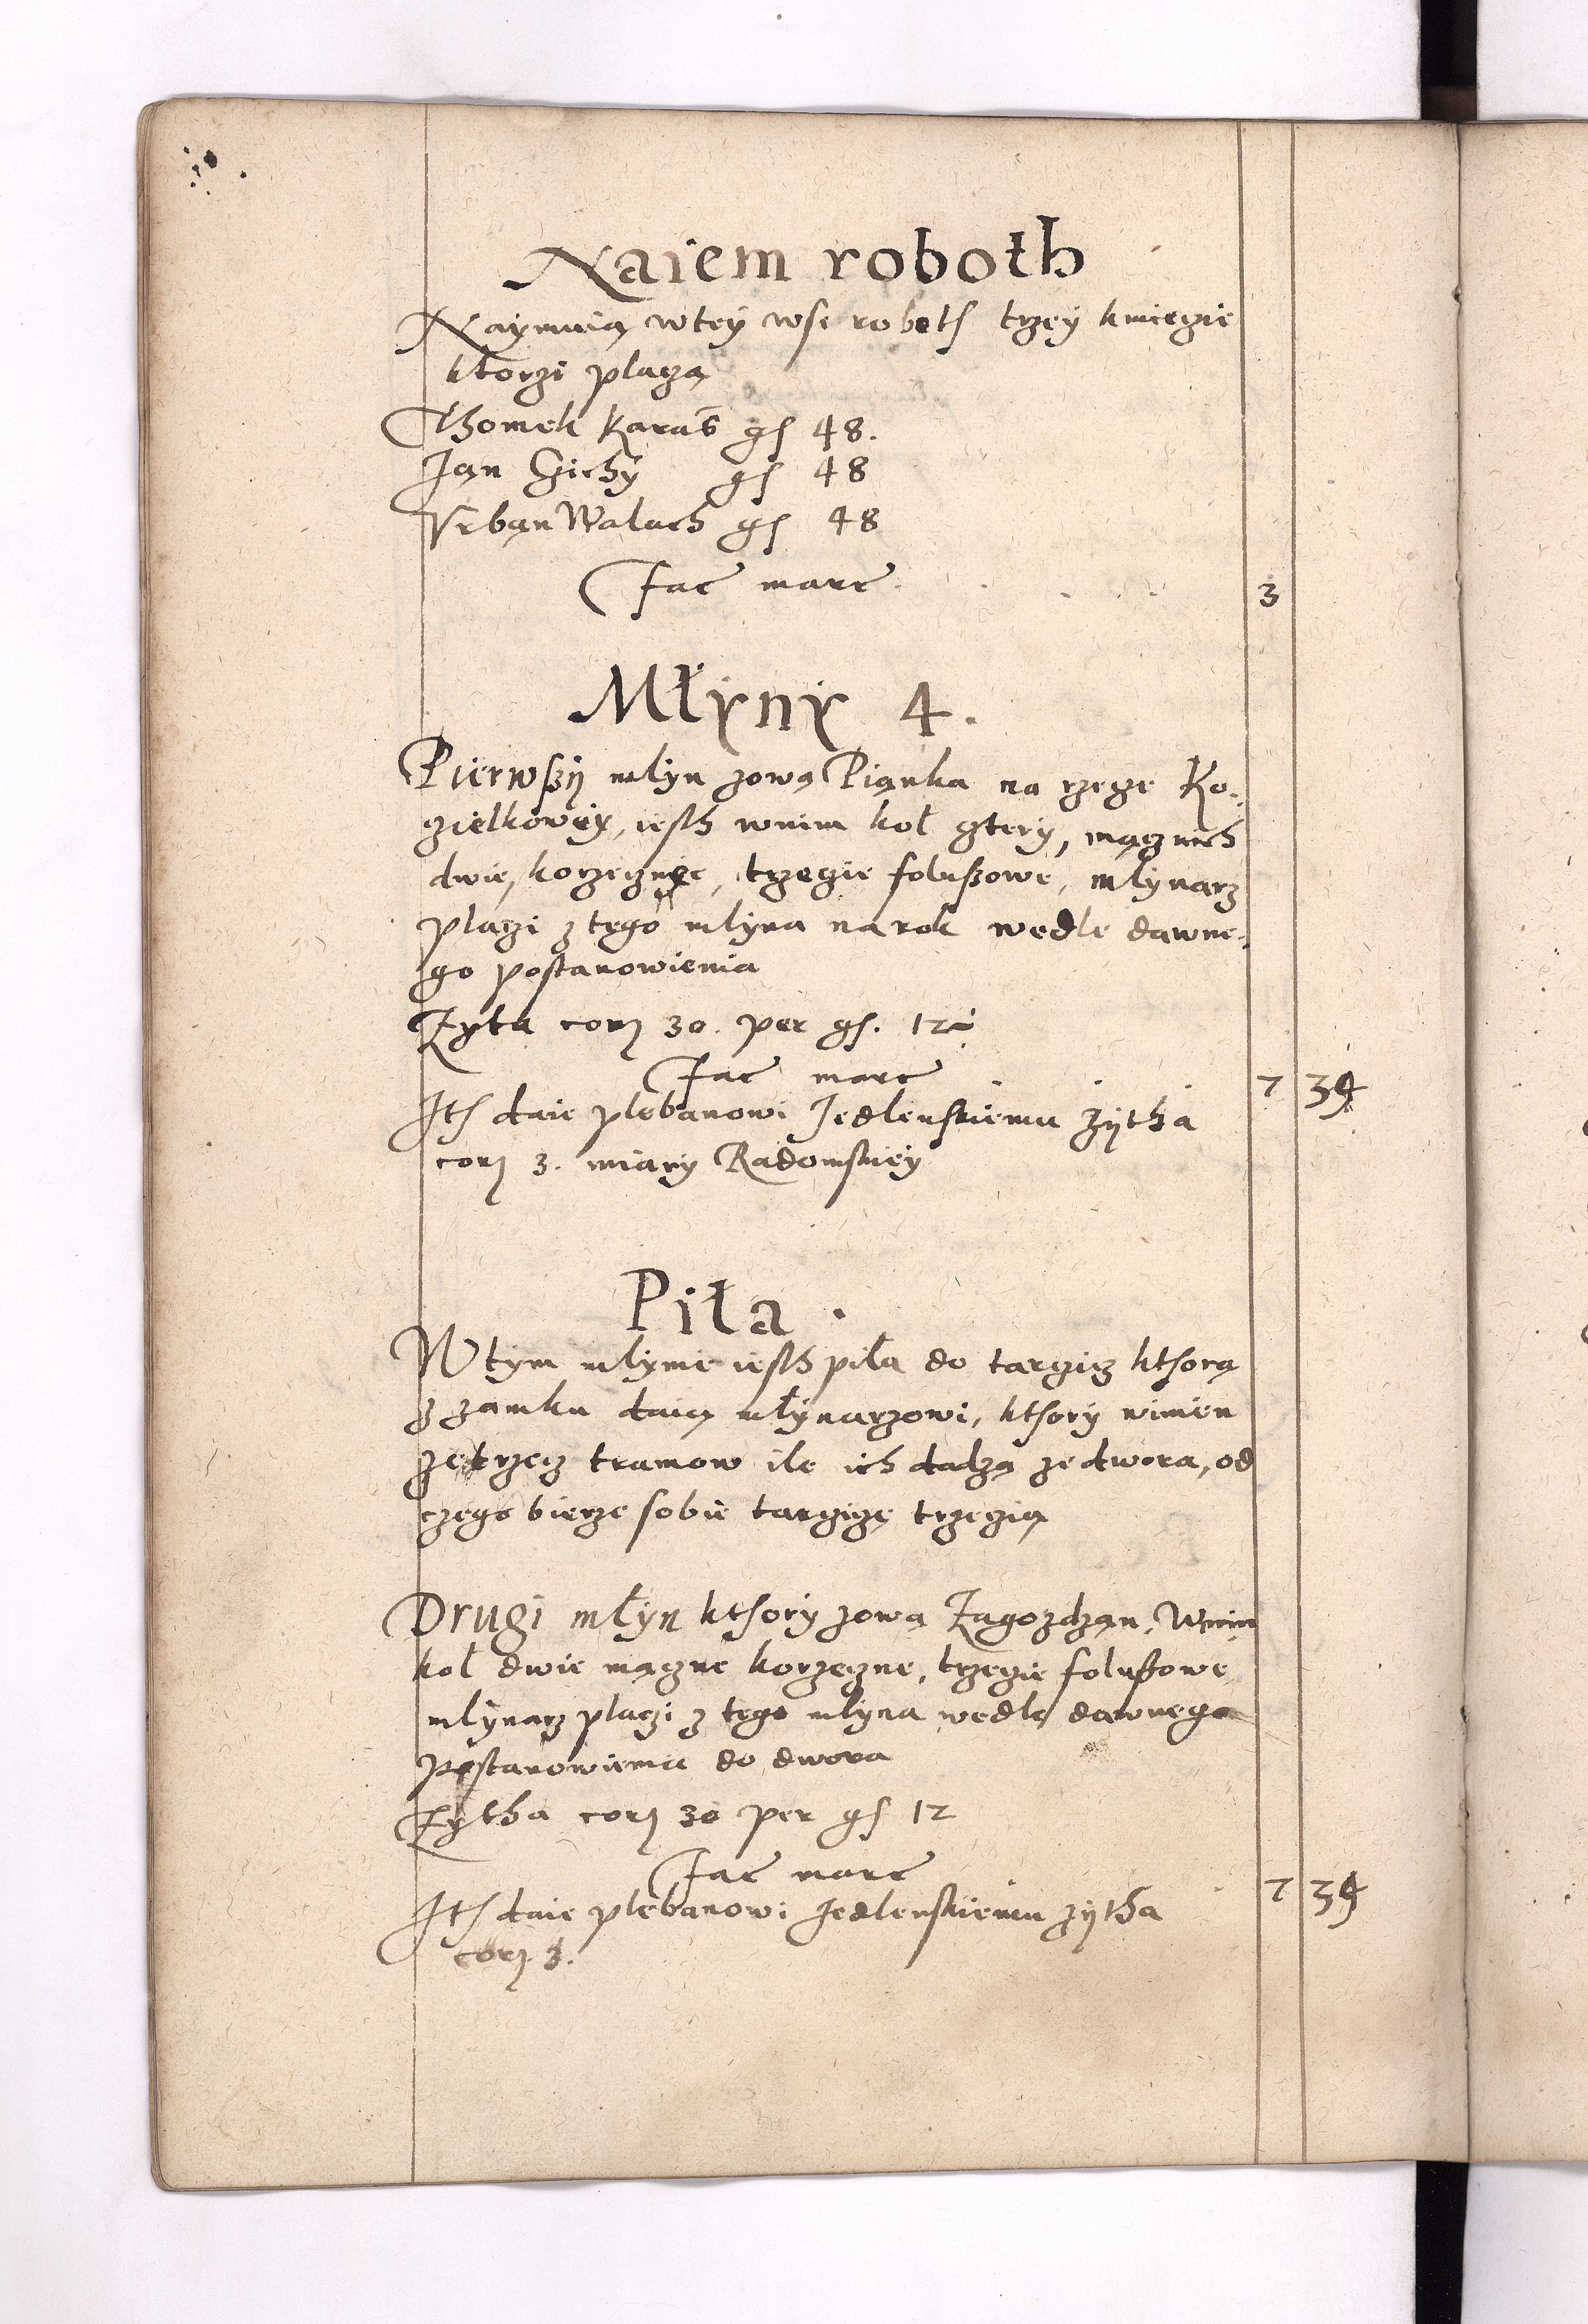 Naiem roboth
Naymuią wtey wsi roboth trzey kmiecie
ktorzi placzą
Thomek Karaś gs 48.
Jan Cichy gs 48
Vrban Waluch gs 48
Fac marc 3
Młyny 4.
Pierwszy mlyn zową Pianka na rzece Ko-
zielkowey, iesth wnim koł cztery, mącznich
dwie, korzeczne, trzecie foluszowe, mlynarz
placzi z tego mlyna na rok wedle dawne-
go postanowienia
Zyta corj 30. per gs. 12
Fac marc 7 39
Ith daie plebanowi Jedlenskiemu zytha
corj 3. miary Radomskiey
Piła.
W tym mlynie iesth piła do tarcic kthorą
z zamku daią młynarzowi, kthory winien
zetrzecz tramow ile ich dadzą ze dwora, od
czego bierze sobie tarcicę trzecią
Drugi młyn kthory zową Zagozdzan, Wnim
koł dwie mączne korzeczne, trzecie foluszowe
mlynarz placzi z tego mlyna wedle dawnego
postanowienia do dwora
Zytha corj 30 per gs 12
Fac marc 7 39
Ith daie plebanowi Jedlenskiemu zytha
corj 3.